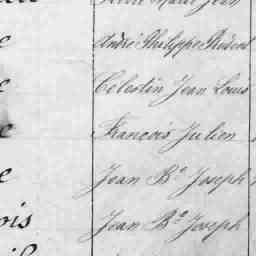 André Philippe Prudent
e Celestin Jean Louis
e François Julien
e Jean Bte Joseph
ois Jean Bte Joseph